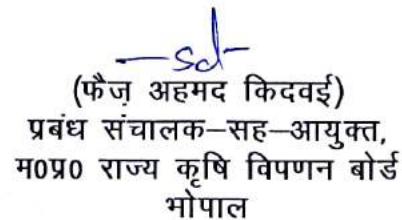 -sd-
(फैज़ अहमद किदवई)
प्रबंध संचालक–सह–आयुक्त,
म0प्र0 राज्य कृषि विपणन बोर्ड
भोपाल